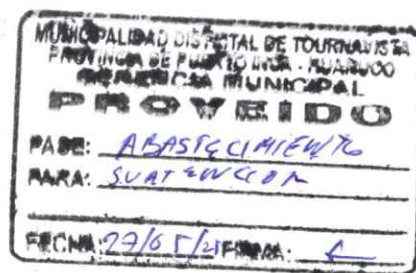 MUNICIPALIDAD DISTRITAL DE TOURNAVISTA
PROVINCIA DE PUERTO INCA - HUANUCO
GERENCIA MUNICIPAL
PROVEIDO
PASE: ABASTECIMIENTO
PARA: SU ATENCION
FECHA: 27/05/21 FIRMA: